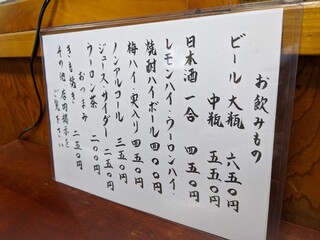 お飲みもの
ビール 大瓶 六五〇円
中瓶 五五〇円
日本酒 一合 四五〇円
レモンハイ・ウーロンハイ・
焼酎ハイボール 四〇〇円
梅ハイ・実入り 四五〇円
ノンアルコール 三五〇円
ジュース・サイダー 二五〇円
ウーロン茶 二〇〇円
おつまみ
二五〇円
その他
ご覧下さい